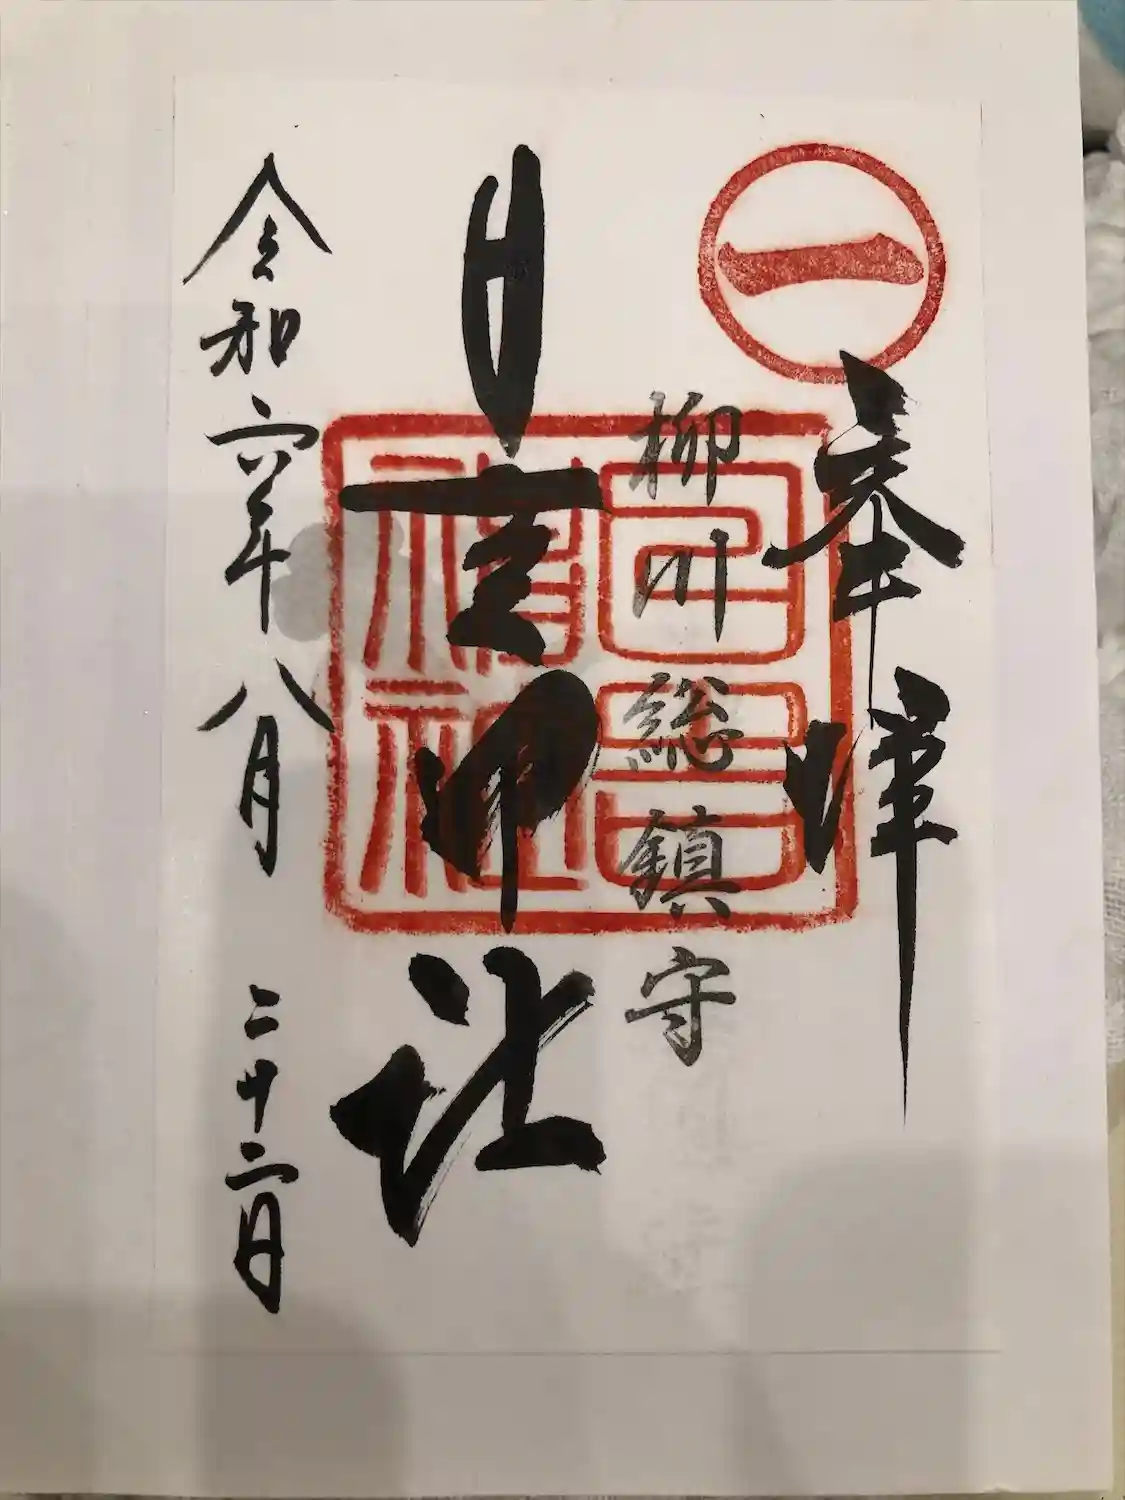 一
奉拝
柳川総鎮守
日吉神社
日吉神社
令和六年八月二十二日